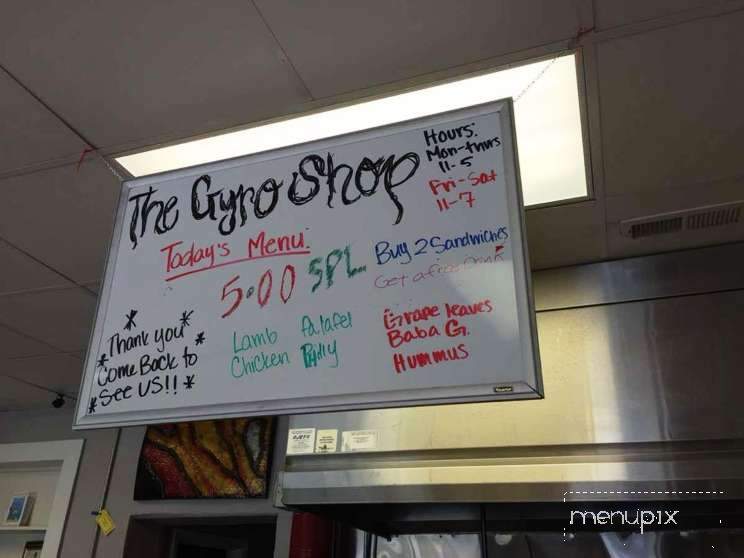 The Gyro Shop
Hours:
Mon-thurs
11-5
Fri-Sat
11-7
Today's Menu:
5.00 SPL
Buy 2 Sandwiches
Get a free Drink
Lamb falafel
Chicken Philly
Grape leaves
Baba G.
Hummus
Thank you
Come Back to
See US!!
menupix